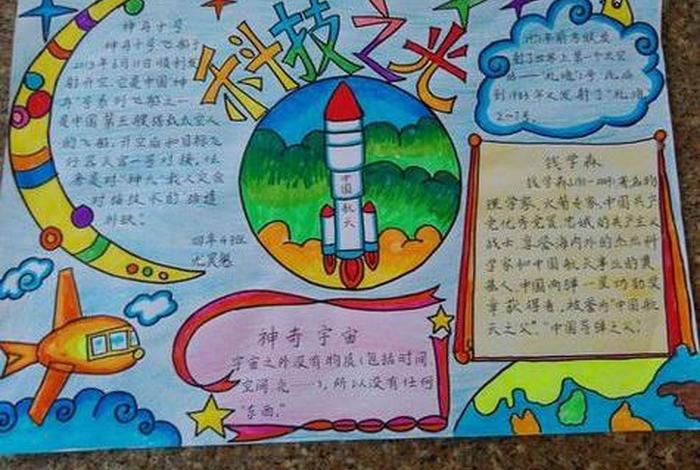 科技之光
神舟十号
神舟十号飞船于
2013年6月11日顺利发
射升空。它是中国"神
舟"号系列飞船之一
是中国第五艘搭载太空人
的飞船。升空后和目标飞
行器天宫一号对接,
对
对接技术的
四年4班
中国航天
神奇宇宙
宇宙之外没有物质(包括时间、
空间、光……),所以没有任何
"东西。"
射了世界上第一个太空
站——"礼炮"1号,此后
到1983年又发射了"礼炮
2—7号。
钱学森
钱学森(1911-2009)著名物
理学家,火箭专家,中国共产
党优秀党员,忠诚的共产主义
战士,享誉海内外的杰出科
学家和中国航天事业的奠
基人,中国两弹一星功勋奖
章获得者,被誉为"中国航
天之父","中国导弹之父"。